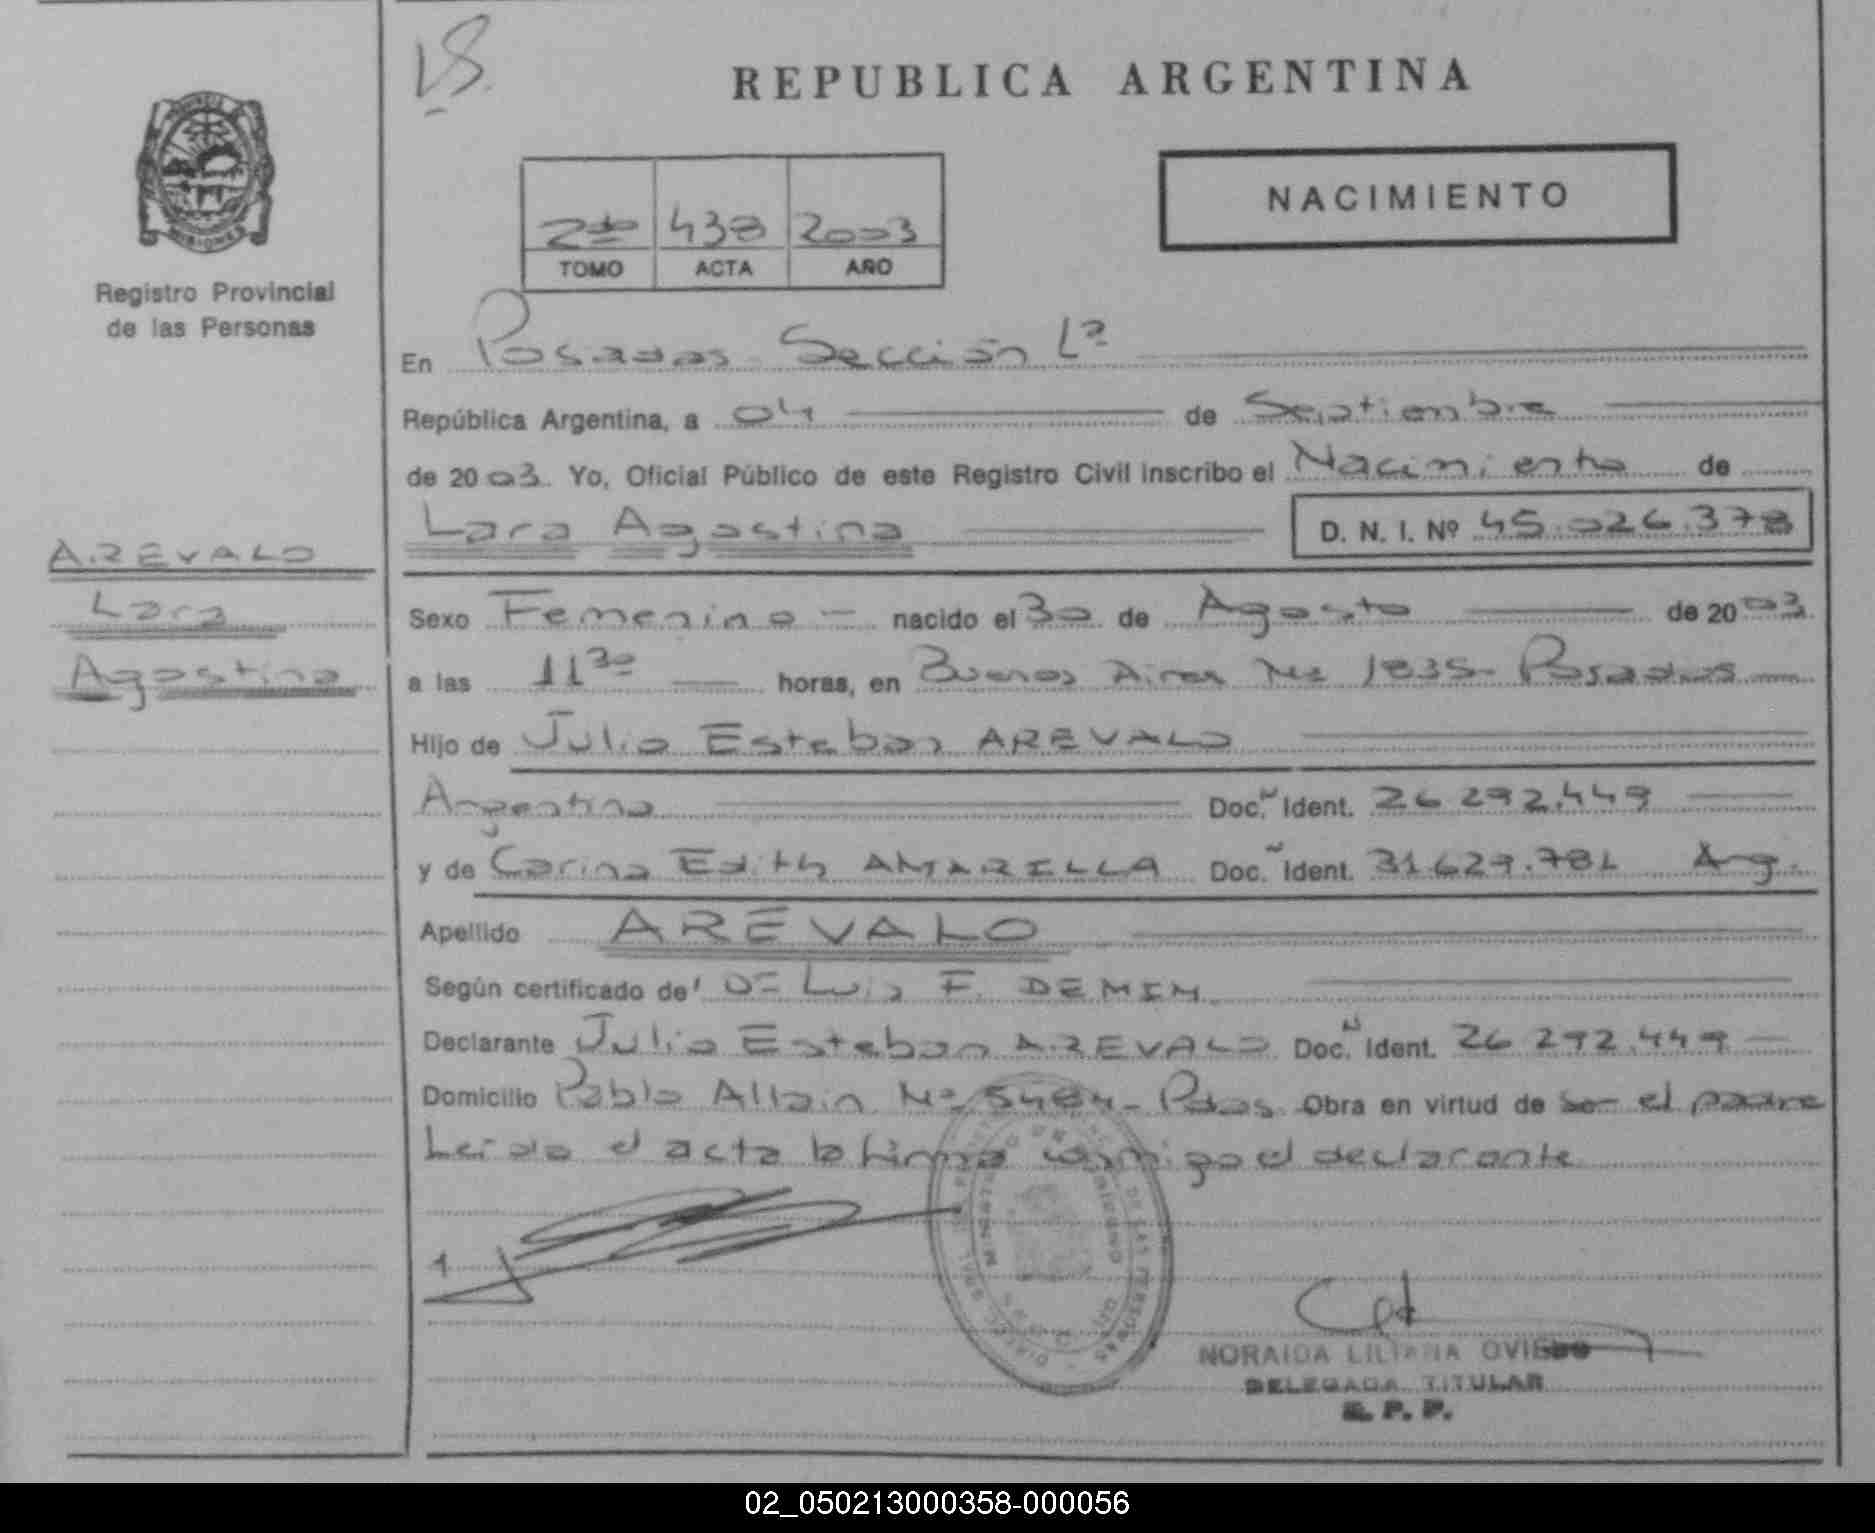 REPUBLICA ARGENTINA
MISIONES
Registro Provincial
de las Personas
2do 438 2003
TOMO ACTA AÑO
NACIMIENTO
En Posadas Sección 1ª
República Argentina, a 04 de Septiembre
de 2003. Yo, Oficial Público de este Registro Civil inscribo el Nacimiento de
Lara Agostina D. N. I. Nº 45.026.378
AREVALO
Lara
Agostina
Sexo Femenino - nacido el 30 de Agosto de 2003.
a las 11 30 horas, en Buenos Aires Nº 1835 - Posadas
Hijo de Julio Esteban AREVALO
Argentino Doc. N Ident. 26 292.449
y de Carina Edith AMARILLA Doc. N Ident. 31.629.781 Arg.
Apellido AREVALO
Según certificado de Dr Luis F.
Declarante Julio Esteban AREVALO Doc. N Ident. 26 292.449
Domicilio Pablo Allain Nº 5484 - Pdas Obra en virtud de ser el padre
Leída el acta la firma conmigo el declarante
NORAIDA LILIANA OVIEDO
DELEGADA TITULAR
R. P. P.
02_050213000358-000056